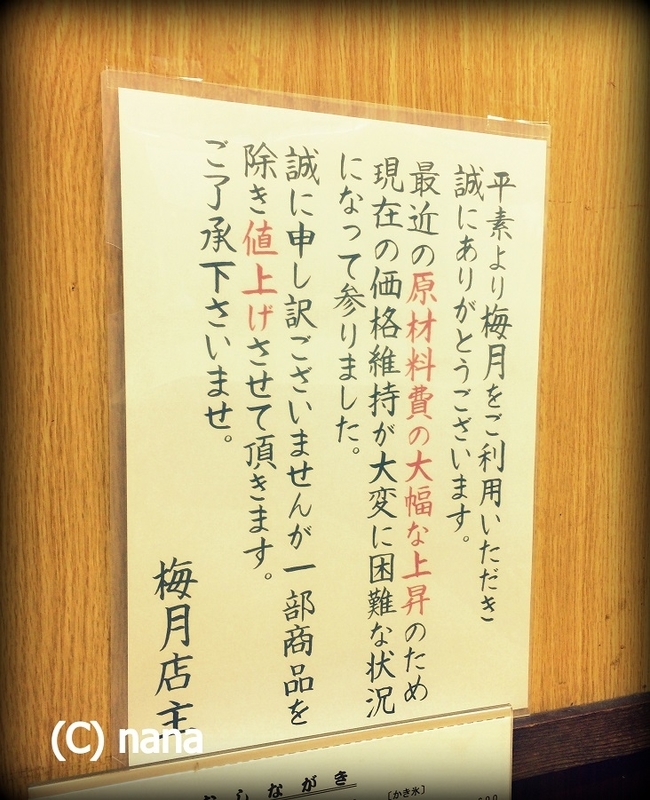 平素より梅月をご利用いただき
誠にありがとうございます。
最近の原材料費の大幅な上昇のため
現在の価格維持が大変に困難な状況
になって参りました。
誠に申し訳ございませんが一部商品を
除き値上げさせて頂きます。
ご了承下さいませ。
梅月店主
(C) nana
おしながき
〔かき氷〕